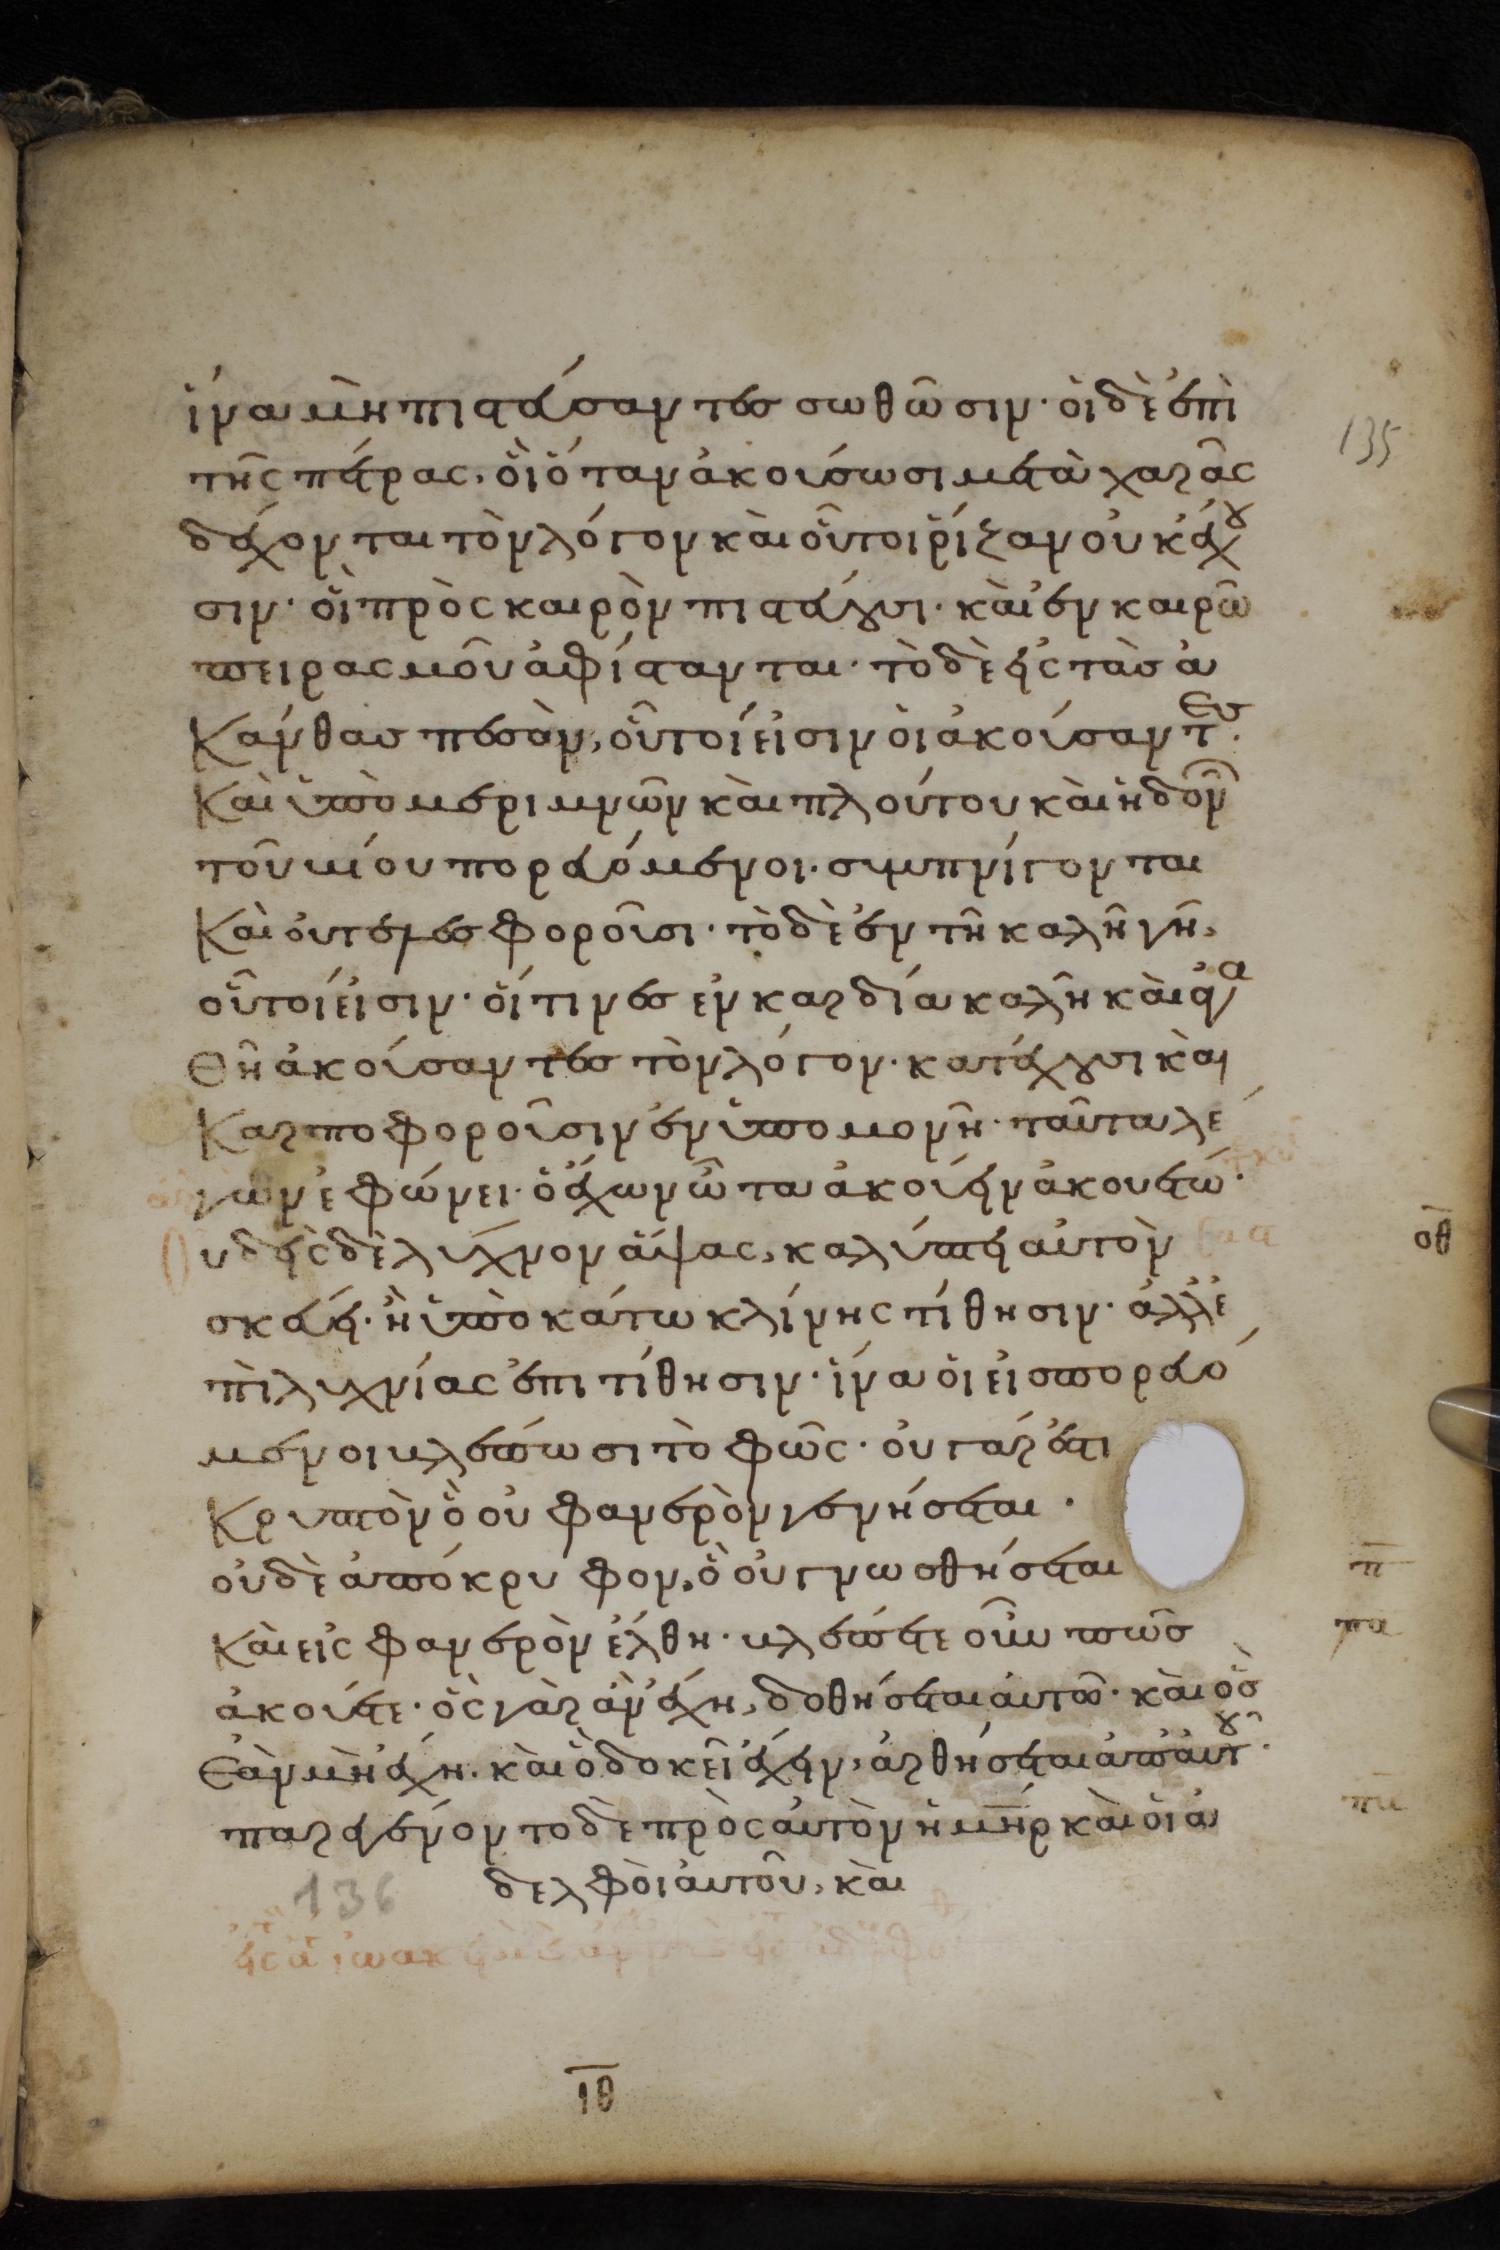 ἵνα μὴ πιστεύσαντες σωθῶσιν· οἱ δὲ ἐπὶ
135
τῆς πέτρας, οἳ ὅταν ἀκούσωσι μετὰ χαρᾶς
δέχονται τὸν λόγον καὶ οὗτοι ῥίζαν οὐκ ἔχου
σιν· οἳ πρὸς καιρὸν πιστεύουσι· καὶ ἐν καιρῶ
πειρασμοῦ ἀφίστανται· τὸ δὲ εἰς τὰς ἀ
κάνθας πεσὸν, οὗτοί εἰσιν οἱ ἀκούσαντες·
καὶ ὑπὸ μεριμνῶν καὶ πλούτου καὶ ἡδονῶν
τοῦ βίου πορευόμενοι· συμπνίγονται
καὶ οὐ τελεσφοροῦσι· τὸ δὲ ἐν τῆ καλῆ γῆ,
οὗτοί εἰσιν· οἵτινες ἐν καρδία καλῆ καὶ ἀγα
θῆ ἀκούσαντες τὸν λόγον· κατέχουσι καὶ
καρποφοροῦσιν ἐν ὑπομονῆ· ταῦτα λέ
γων ἐφώνει· ὁ ἔχων ὦτα ἀκούειν ἀκουέτω·
Ουδεὶς δὲ λύχνον ἅψας, καλύπτει αὐτὸν
οθ
σκεύει· ἢ ὑποκάτω κλίνης τίθησιν· ἀλλ' ἐ
πὶ λυχνίας ἐπιτίθησιν· ἵνα οἱ εἰσπορευό
μενοι βλέπωσι τὸ φῶς· οὐ γάρ ἐστι
κρυπτὸν ὃ οὐ φανερὸν γενήσεται·
οὐδὲ ἀπόκρυφον, ὃ οὐ γνωσθήσεται
π
καὶ εἰς φανερὸν ἔλθη· βλέπετε οὖν πῶς
πα
ἀκούετε· ὃς γὰρ ἂν ἔχη, δοθήσεται αὐτῶ· καὶ ὃς
ἐὰν μὴ ἔχη· καὶ ὃ δοκεῖ ἔχειν, ἀρθήσεται ἀπ' αὐτοῦ·
παρεγένοντο δὲ πρὸς αὐτὸν ἡ μηρ καὶ οἱ ἀ
πβ
δελφοὶ αὐτοῦ, καὶ
136
ιθ